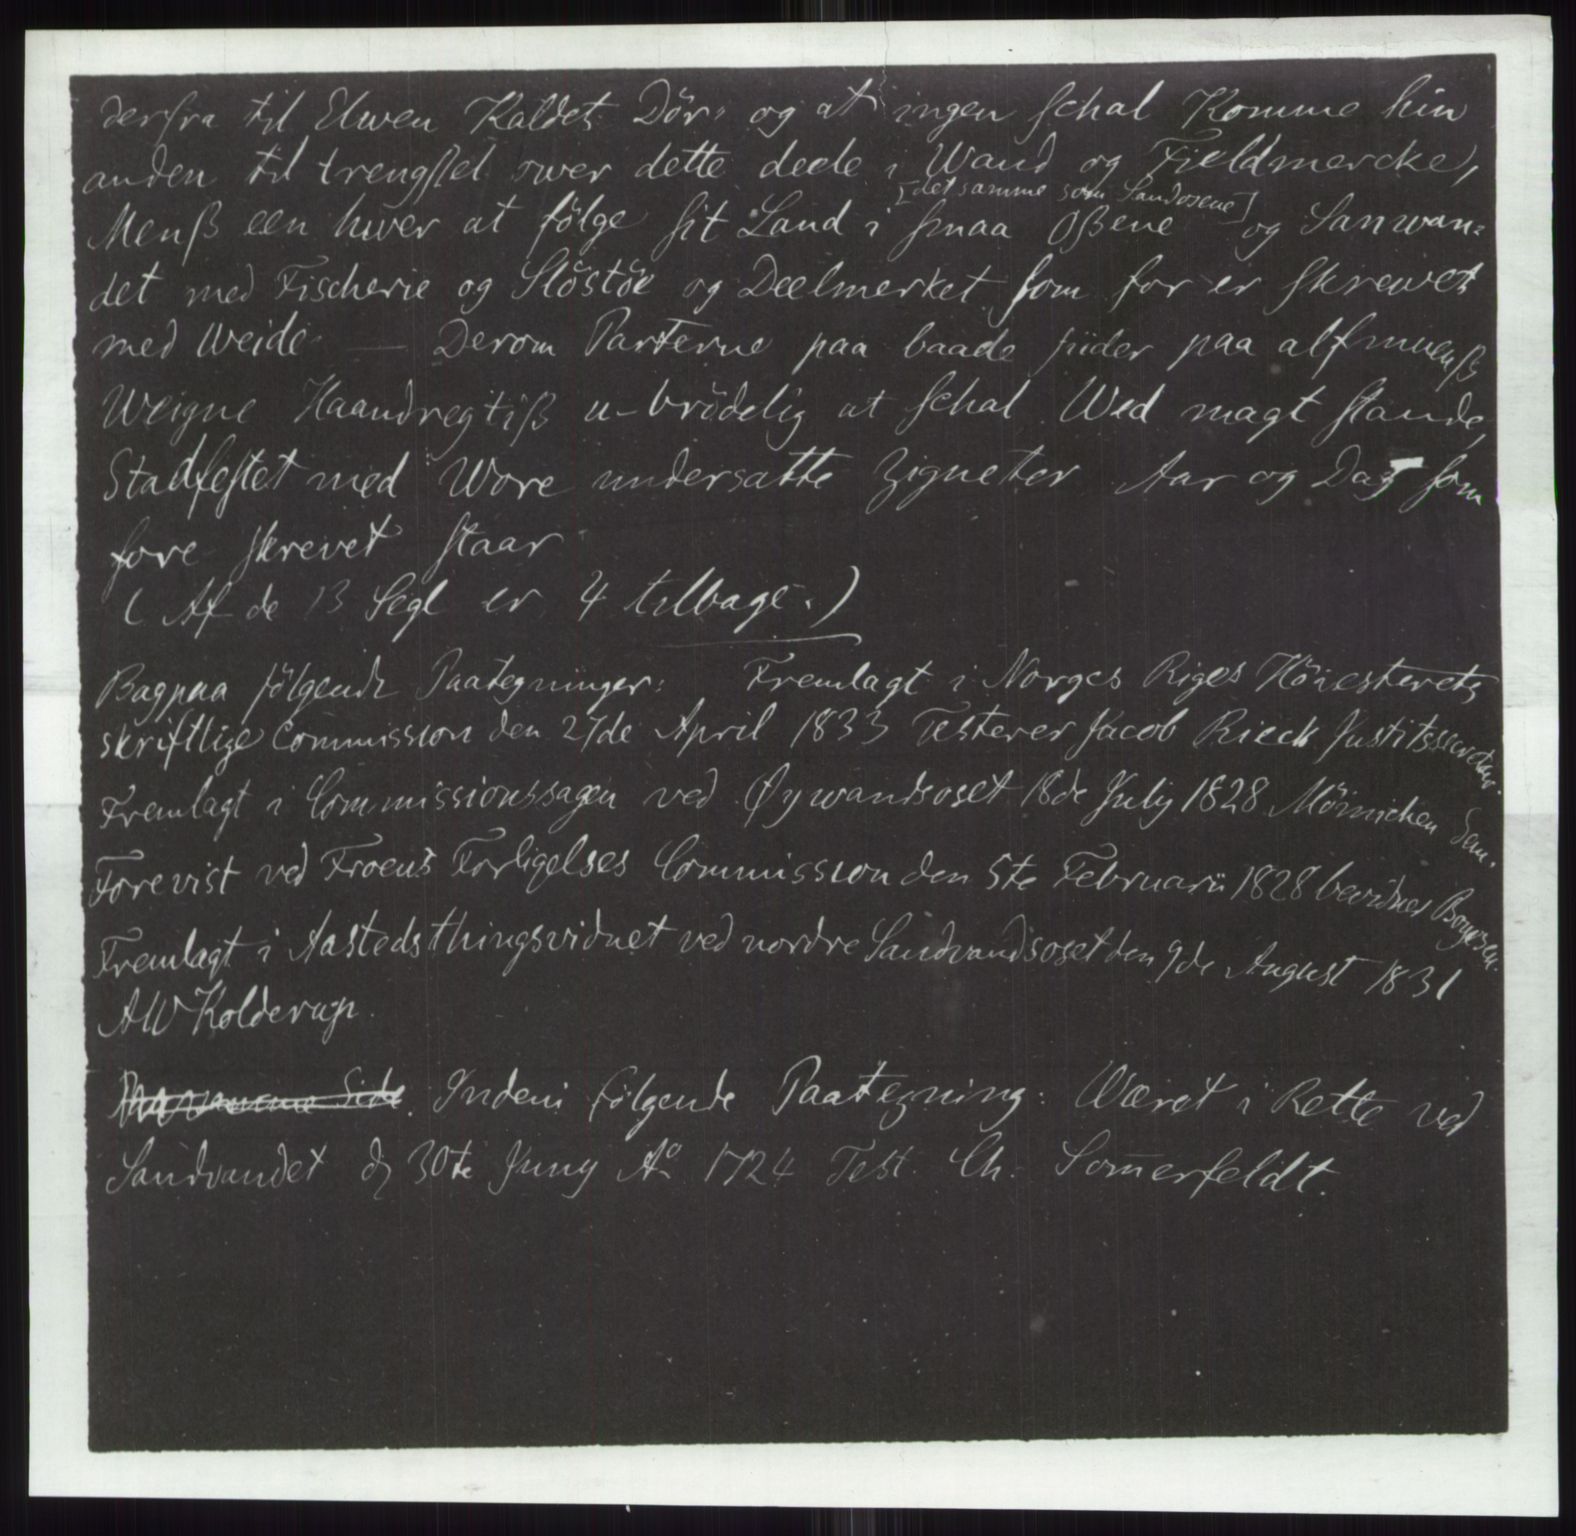 derfra til Elwen Kaldet Dör, og at ingen schal Komme hin
anden til trengsel ower dette deele i Wand og Fieldmercke,
[det samme som Sandosene]
Menß een hwer at følge sit Land i smaa Oßene og Sanwan=
det med Fischerie og Slöstöe og Deelmerket som for er skrewet
med Weide — Derom Parterne paa baade siider paa alfmuenß
Weigne Haandregtiß u-brödelig at schal Wed magt stande,
Stadfestet med Wore undersatte Zigneter Aar og Dag som
fore skrevet staar
(Af de 13 Segl er 4 tilbage.)
Bagpaa følgende Paategninger: Fremlagt i Norges Riges Höiesterets
skriftlige Commission den 27de April 1833 Testerer Jacob Rieck Justitssecretair.
Fremlagt i Commissionssagen ved Øywandsoset 18de July 1828 Mönnichen Sem.
Forevist ved Froens Forligelses Commission den 5te Februarii 1828 bevidner
Fremlagt i Aastedsthingsvidnet ved nordre Sandvandsoset den 9de August 1831
AW Kolderup.
Side. Indeni følgende Paategning: Wæret i Rette ved
Sandvandet d 30te Juny Ao 1724 Test. Ch. Som̄erfeldt.